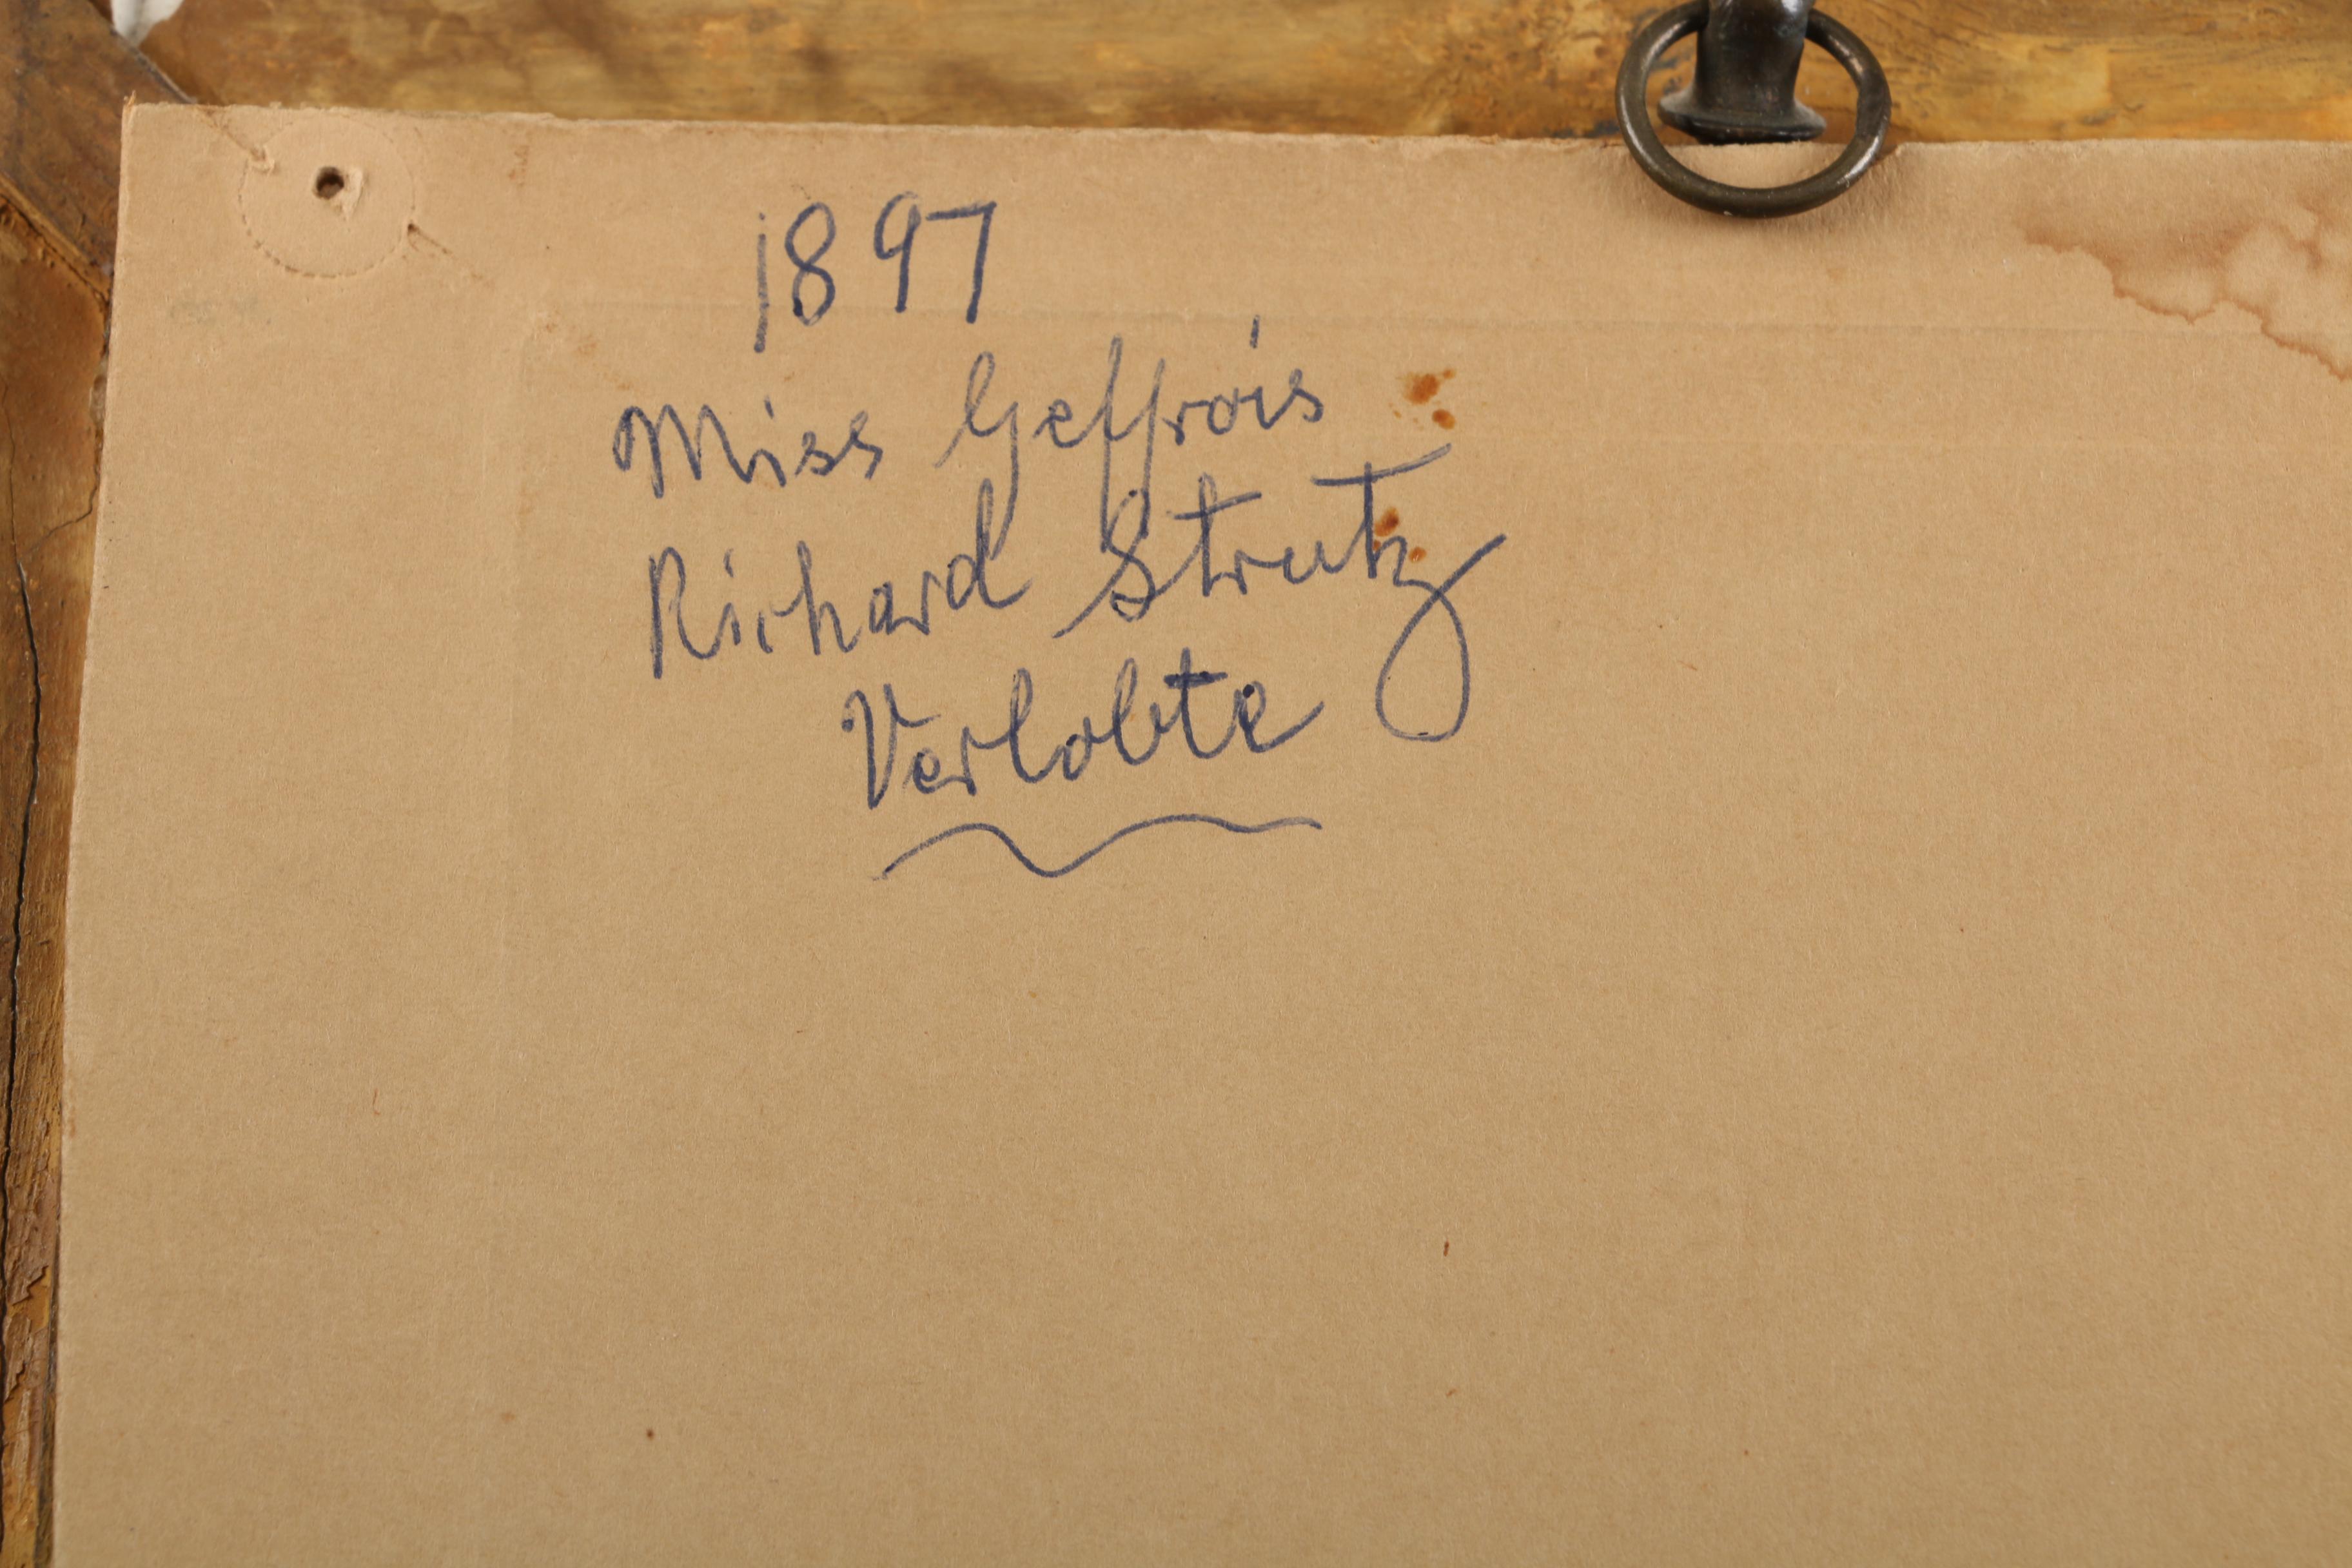 1897
Miss Geffrois
Richard Strutz
Verlobte